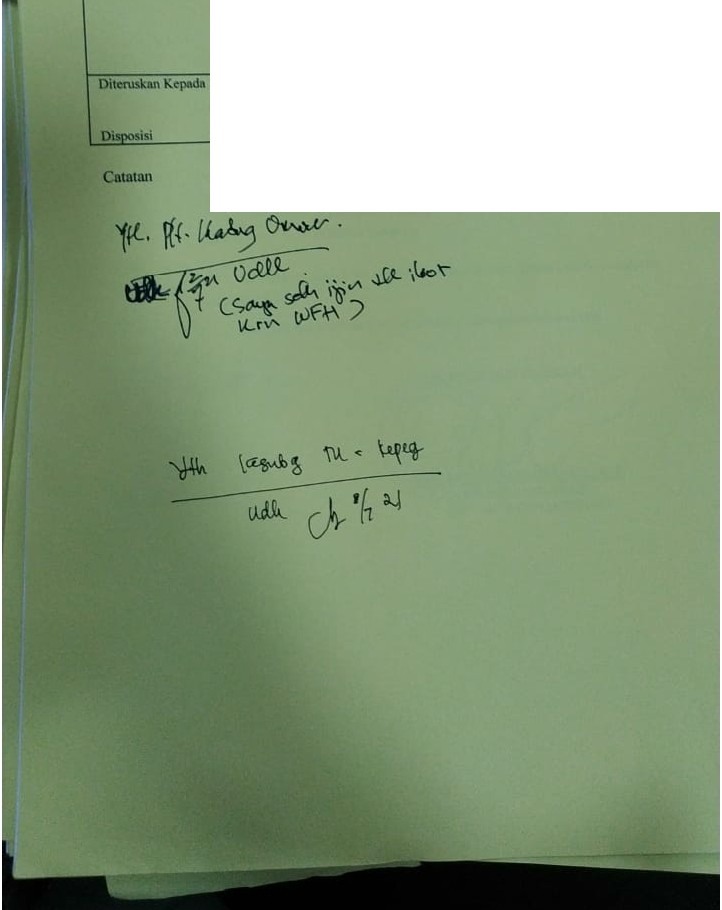 Diteruskan Kepada
Disposisi
Catatan
Yth. Plt. Kabag
Udlk
(Saya sdh ijin tdk ikut
krn WFH)
Yth Kasubg TU & Kepeg
Udlk 8/7 21